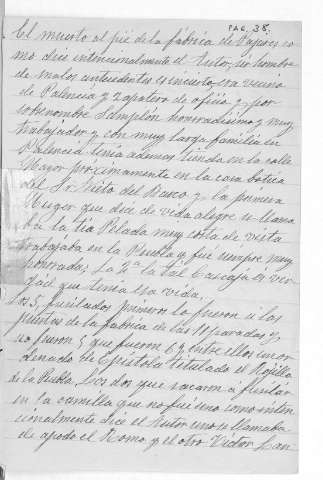 PAG. 38.
El muerto al pié de la fábrica de Papeses co
mo dice intencionalmente el Autor, un hombre
de malos antecedentes es incierto, era vecino
de Palencia y Zapatero de oficio y por
sobrenombre Simplón honradisimo y muy
trabajador y con muy larga familia en
Palencia, tenía ademas tienda en la calle
Mayor próximamente en la casa botica
del Sr. Nieto del Barco y la primera
Muger que dice de vida alegre se llama
ba la tía Pelada muy corta de vista
trabajaba en la Puebla y fue siempre muy
honrada, La 2ª la tal Cascaja es ver
que tenía esa vida.
Los 5, fusilados primeros lo fueron á las
puertas de la fabrica de las 11 paradas y
no fueron 5 que fueron 6 y entre ellos un or
denado de Epístola titulado el Rojillo
de la Puebla. Los dos que sacaron á fusilar
en la camilla que no fué uno como inten
cionalmente dice el Autor uno se llamaba
de apodo el Romo y el otro Victor San